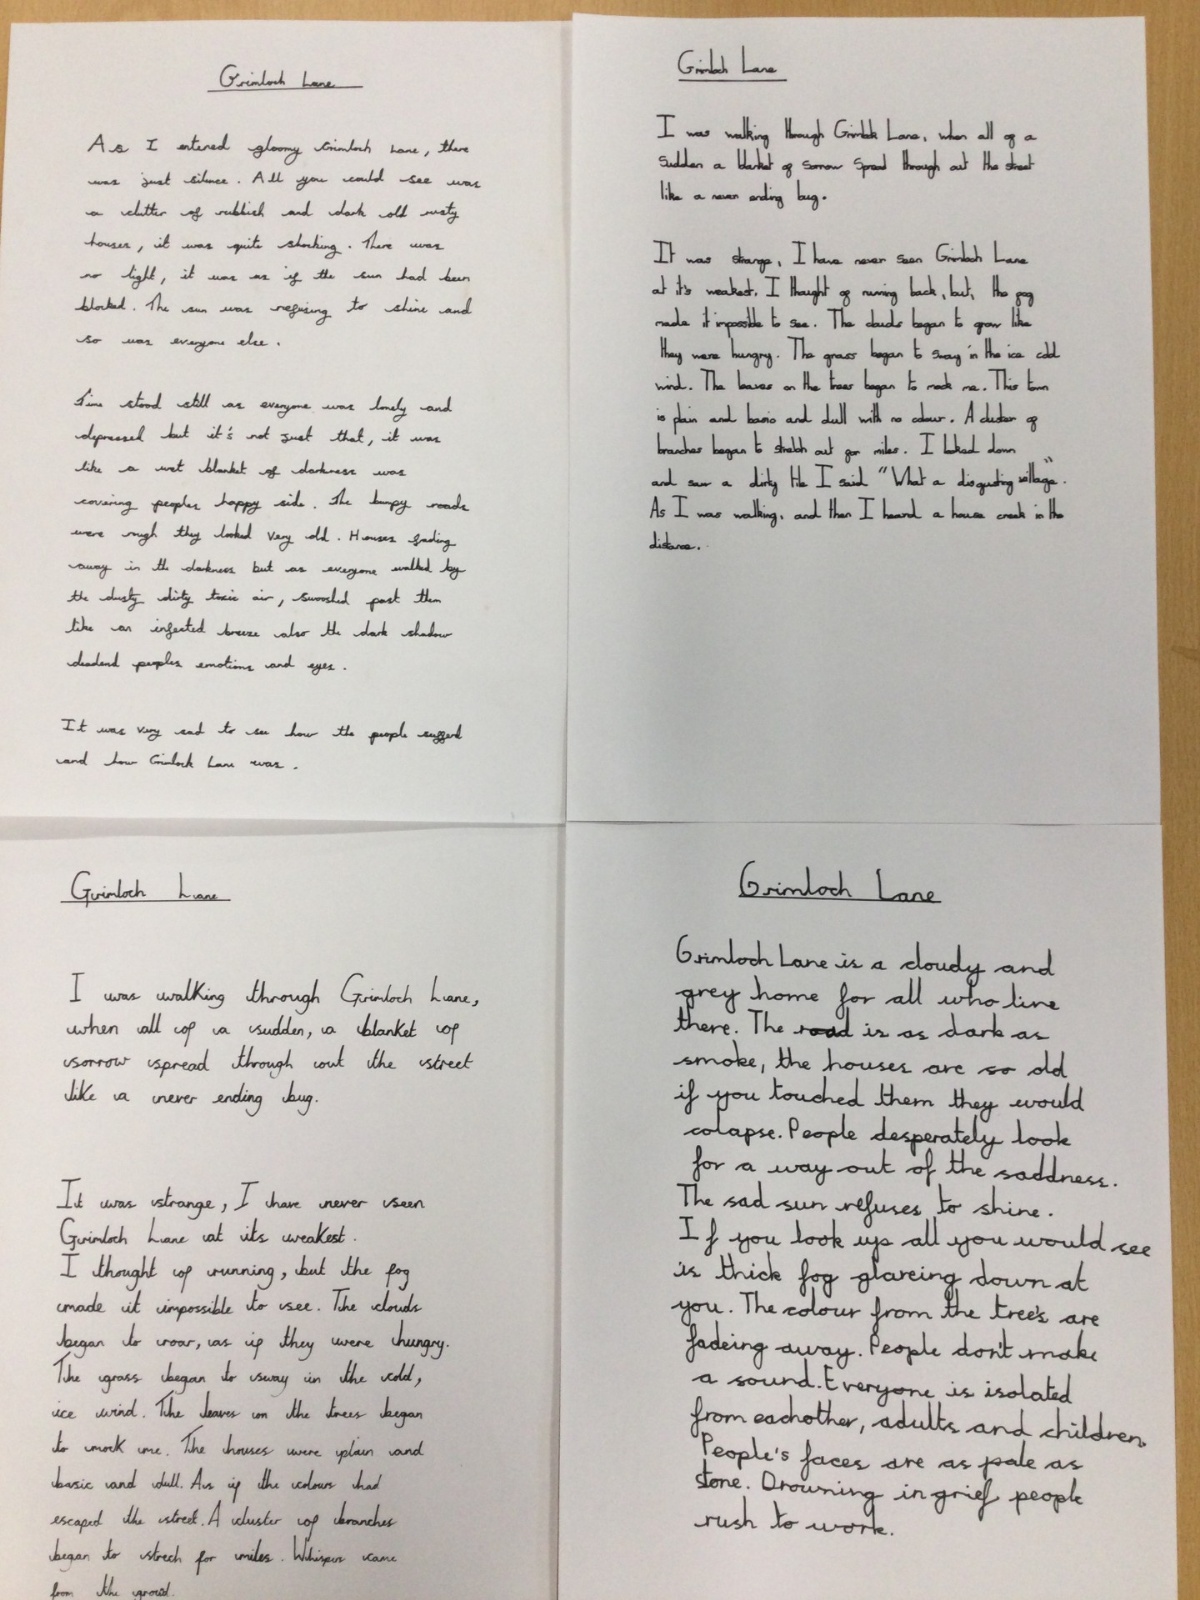 Grimloch Lane
As I entered gloomy Grimloch Lane, there
was just silence. All you could see was
a clutter of rubbish and dark old rusty
houses, it was quite shocking. There was
no light, it was as if the sun had been
blocked. The sun was refusing to shine and
so was everyone else.
Time stood still as everyone was lonely and
depressed but it's not just that, it was
like a wet blanket of darkness was
covering peoples happy side. The bumpy roads
were rough they looked very old. Houses fading
away in the darkness but as everyone walked by
the dusty dirty toxic air, swooshed past them
like an infected breeze also the dark shadow
deadend peoples emotions and eyes.
It was very sad to see how the people sufferd
and how Grimlock Lane was.
Grimloch Lane
I was walking through Grimlok Lane, when all of a
sudden a blanket of sorrow spread through out the street
like a never ending bug.
It was strange, I have never seen Grimloch Lane
at it's weakest. I thought of running back, but, the fog
made it impossible to see. The clouds began to grow like
they were hungry. The grass began to sway in the ice cold
wind. The leaves on the trees began to mock me. This town
is plain and basic and dull with no colour. A cluster of
branches began to stretch out for miles. I looked down
and saw a dirty tile I said "What a disgusting village".
As I was walking, and then I heard a house creek in the
distance.
Grimloch Lane
I was walking through Grimloch Lane,
when all of a sudden, a blanket of
sorrow spread through out the street
like a never ending bug.
It was strange, I have never seen
Grimloch Lane at its weakest.
I thought of running, but the fog
made it impossible to see. The clouds
began to roar, as if they were hungry.
The grass began to sway in the cold,
ice wind. The leaves on the trees began
to mock me. The houses were plain and
basic and dull. As if the colours had
escaped the street. A cluster of branches
began to strech for miles. Whispers came
from the
Grimloch Lane
Grimloch Lane is a cloudy and
grey home for all who live
there. The road is as dark as
smoke, the houses are so old
if you touched them they would
colapse. People desperately look
for a way out of the saddness.
The sad sun refuses to shine.
If you look up all you would see
is thick fog glareing down at
you. The colour from the tree's are
fadeing away. People don't make
a sound. Everyone is isolated
from eachother, adults and children.
People's faces are as pale as
stone. Drowning in grief people
rush to work.